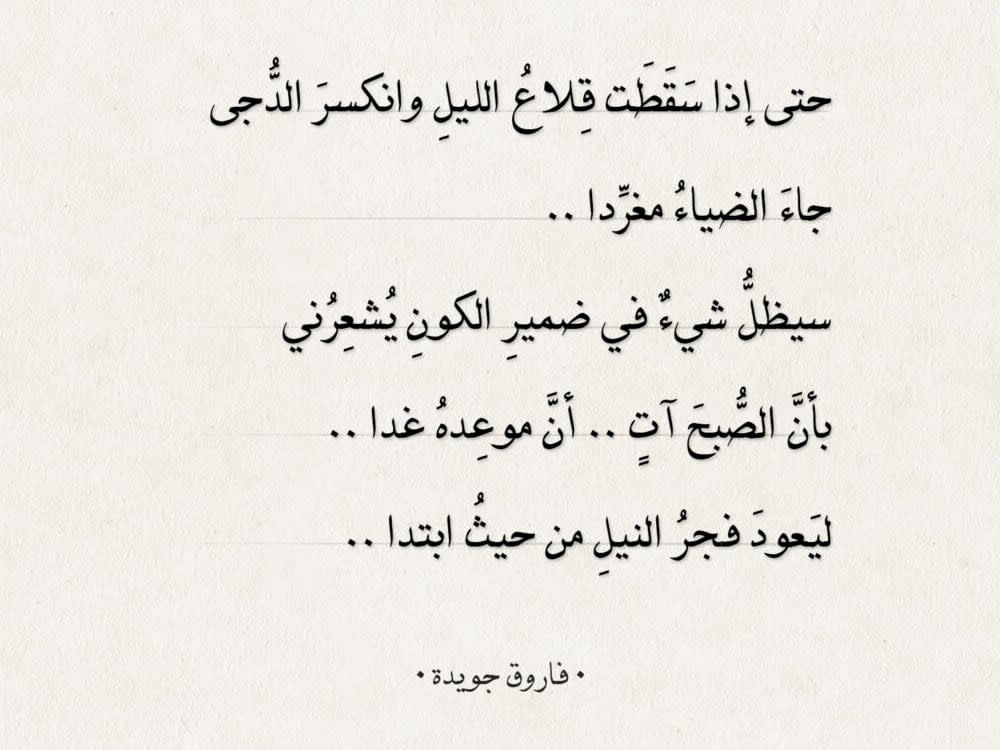 حتى إذا سَقَطَت قِلاعُ الليلِ وانكسرَ الدُّجى
جاءَ الضياءُ مغرِّدا ..
سيظلُّ شيءٌ في ضميرِ الكونِ يُشعِرُني
بأنَّ الصُّبحَ آتٍ .. أنَّ موعِدهُ غدا ..
ليَعودَ فجرُ النيلِ من حيثُ ابتدا ..
• فاروق جويدة •